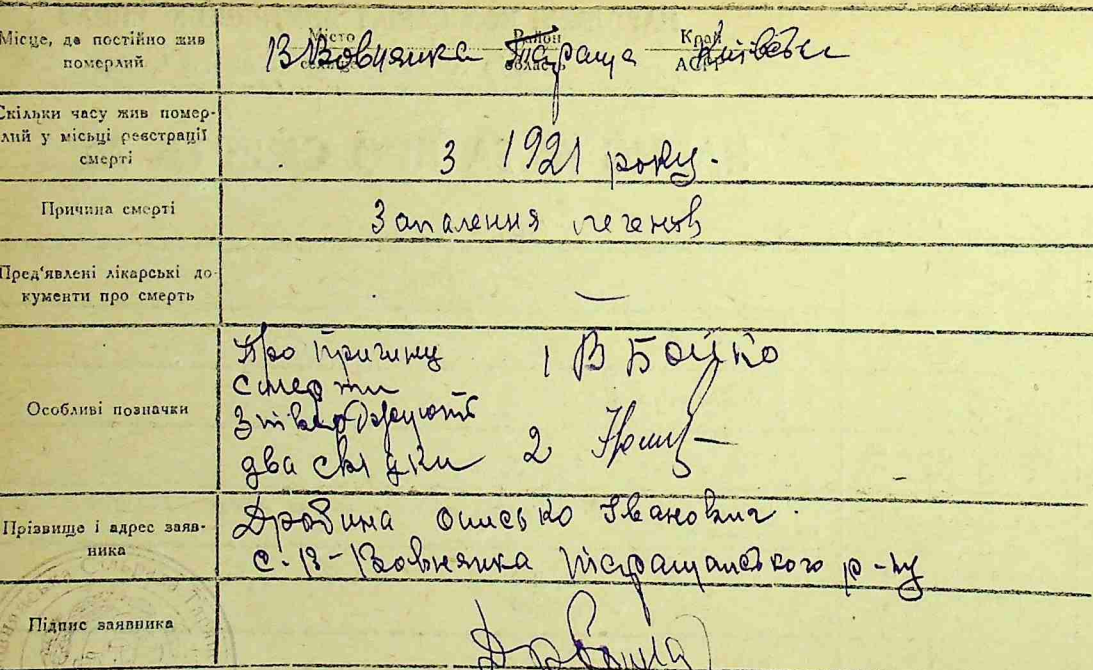 Місце, де постійно жив
померлий
Місто Район Край
селище область АСРР
В Вовнянка Тараща Київськ
Скільки часу жив помер-
лий у місьці реєстрації
смерті
З 1921 року.
Причина смерті
Запалення легенів
Пред'явлені лікарські до-
кументи про смерть
—
Особливі позначки
Про причину 1 В Бойко
смерти
Ствержують
два свідки 2
Прізвище і адрес заяв-
ника
Дробина Онисько Іванович.
с. В-Вовнянка Таращанського р-ну
Підпис заявника
Дробина